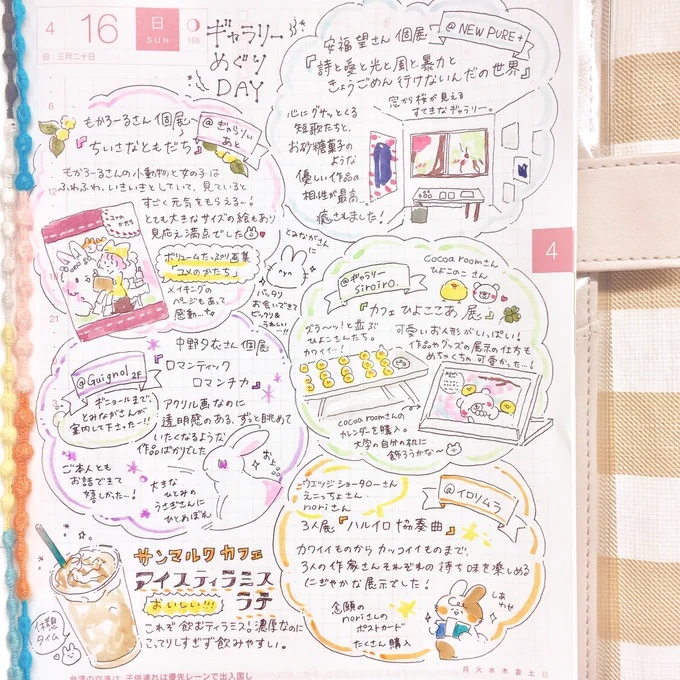 4
16
日
SUN
106
旧：三月二十日
ギャラリー
めぐり
DAY
@ NEW PURE+
安福望さん個展
『詩と愛と光と風と暴力と
きょうごめん行けないんだの世界』
窓から桜が見える
すてきなギャラリー。
心にグサッとくる
短歌たちと、
お砂糖菓子の
ような
優しい作品の
相性が最高…。
癒されました！
もかろーるさん個展
@ぎゃらりい
あと
『ちいさなともだち』
もかろーるさんの小動物と女の子は
ふわふわ、いきいきとしていて、見ていると
すごく元気をもらえる…！
とても大きなサイズの絵もあり
見応え満点でした
ユメの
かたち
ボリュームたっぷり画集
『ユメのかたち』
メイキングの
ページもあって
感動…
とみながさんに
バッタリ
お会いできて
ビックリ&
うれしい…!!
4
@ギャラリー
siroiro.
cocoa roomさん
ひよこのこさん
『カフェ ひよここあ 展』
ずらーっ！と並ぶ
ひよこさんたち。
カワイイー！
可愛いお人形がいっぱい！
作品やグッズの展示の仕方も
めちゃくちゃ可愛かった…！
cocoa roomさんの
カレンダーを購入。
大学の自分の机に
飾ろうかな〜
中野夕衣さん個展
@Guignol 2F
『ロマンティック
ロマンチカ』
ギニョールまで、
とみながさんが
案内して下さったー!!
アクリル画なのに
透明感のある、ずっと眺めて
いたくなるような
作品ばかりでした
ご本人とも
お話できて
嬉しかった…！
大きな
ひとみの
うさぎさんに
ひとめぼれ
ウエッジショータローさん
えこっちょさん
noriさん
@イロリムラ
3人展『ハルイロ協奏曲』
カワイイものからカッコイイものまで、
3人の作家さんそれぞれの持ち味を楽しめる
にぎやかな展示でした！
念願の
noriさんの
ポストカード
たくさん購入
しあわせ
サンマルクカフェ
アイスティラミス
ラテ
おいしい!!!
これぞ飲むティラミス！濃厚なのに
こってりしすぎず飲みやすい。
休憩
タイム
月火水木金土日
台湾の空港は、子供連れは優先レーンで出入国し
6
12
18
21